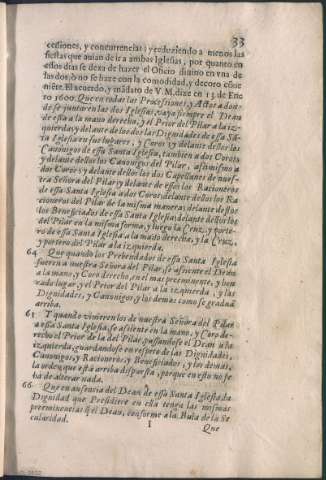 33
cessiones, y concurrencias; y reduziendo a menos las
fiestas que auian de ir a ambas Iglesias, por quanto en
estos dias se dexa de hazer el Oficio diuino en vna de
las dos, ò no se haze con la comodidad, y decoro
niẽte. El acuerdo, y mãdato de V.M. dize en 15 de Ene
ro 1600. Que en todas las Processiones, y Actos a don-
de se juntaren las dos Iglesias, vaya siempre el Dean
de essa a la mano derecha, y el Prior del Pilar a la iz-
quierda, y delante de los dos las Dignidades de essa Sã-
ta Iglesia en sus lugares, y Coros; y delante destos los
Canonigos de essa Iglesia, tambien a dos Coros;
y delante destos los Canonigos del Pilar, assimismo a
dos Coros; y delante destos los dos Capellanes de nues-
tra Señora del Pilar; y delante de estos los Racioneros
de essa Santa Iglesia a dos Coros; delante destos los Ra
cioneros del Pilar de la misma manera; delante destos
los Beneficiados de essa Santa Iglesia; delante destos los
del Pilar en la misma forma, y luego la Cruz, y porte-
ro de essa Santa Iglesia a la mano derecha, y la Cruz,
y portero del Pilar a la izquierda.
64 Que quando los Prebendados de essa Santa Iglesia
fueren a nuestra Señora del Pilar, se assiente el Dean
a la mano, y Coro derecho, en el mas preeminente, y hon
rado lugar, y el Prior del Pilar a la izquierda, y las
Dignidades, y Canonigos, y los demas como se gradua
arriba.
65 Y quando vinieren los de nuestra Señora del Pilar
a essa Santa Iglesia, se assiente en la mano, y Coro de-
recho el Prior de la del Pilar, passandose el Dean a la
izquierda, guardandose en respeto de las Dignidades,
Canonigos, y Racioneros, y Beneficiados, y los demas,
la orden que está arriba dispuesta, porque en esto no se
ha de alterar nada.
66 Que en ausencia del Dean de essa Santa Iglesia la
Dignidad que Presidiere en ella tenga las mismas
preeminencias q̃ el Dean, conforme a la Bula de la Se
cularidad.
I
Que